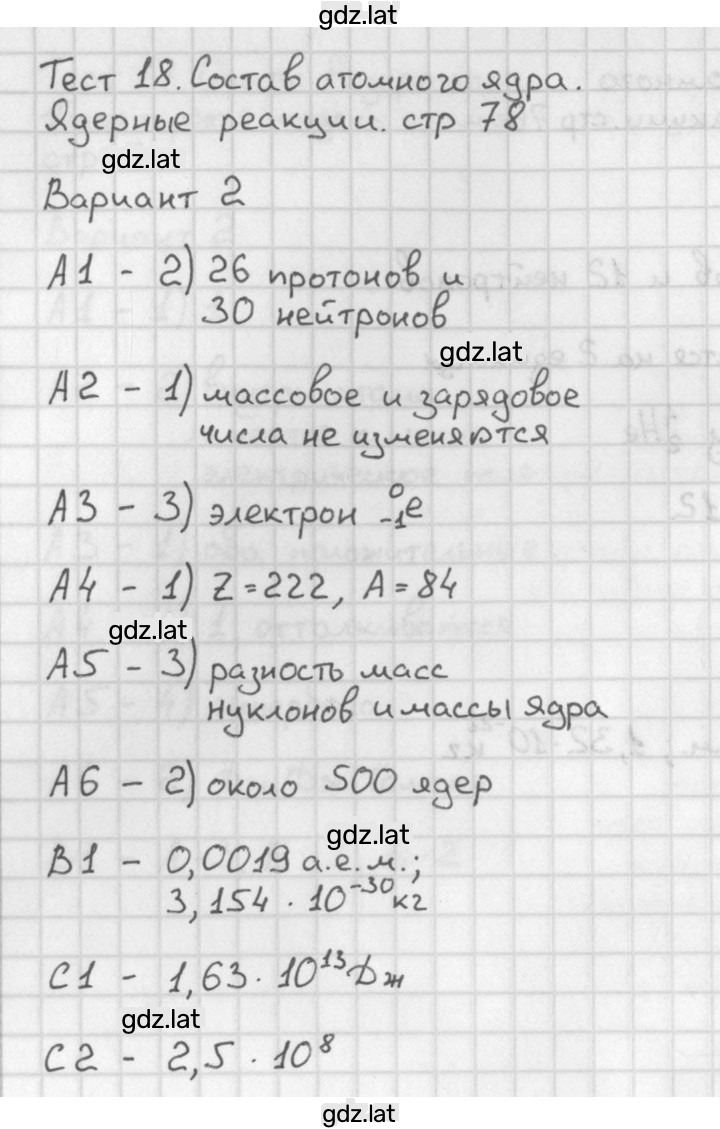 gdz.lat
Тест 18. Состав атомного ядра.
Ядерные реакции. стр 78
gdz.lat
Вариант 2
А1 - 2) 26 протонов и
30 нейтронов
gdz.lat
А2 - 1) массовое и зарядовое
числа не изменяются
А3 - 3) электрон ⁰₋₁e
А4 - 1) Z = 222, A = 84
gdz.lat
А5 - 3) разность масс
нуклонов и массы ядра
А6 - 2) около 500 ядер
gdz.lat
В1 - 0,0019 а.е.м.;
3,154 · 10⁻³⁰ кг
С1 - 1,63 · 10¹³ Дж
gdz.lat
С2 - 2,5 · 10⁸
gdz.lat